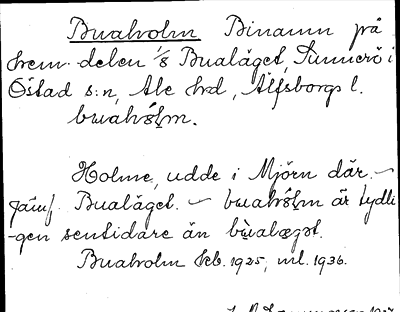 Buaholm Binamn på
hem-delen 1/8 Bualäget, Sunnerö i
Östad s:n, Ale hd, Älfsborgs l.
buahólm.
Holme, udde i Mjörn där. –
Jämf. Bualäget. – buahólm är tydli
-gen sentidare än bùalægət.
Buaholm kb. 1925, ml. 1936.